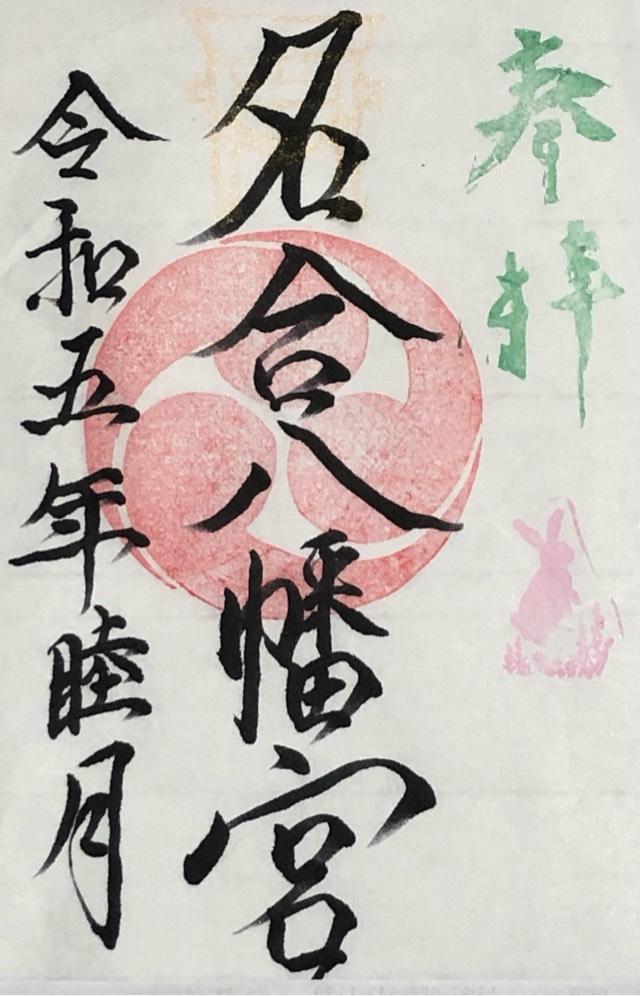 奉拝
名合八幡宮
令和五年睦月